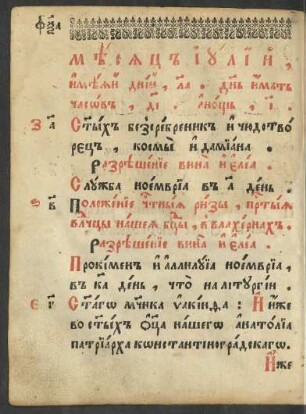 МѢСѦЦЪ ІУЛІЙ,
имѣѧй дній, ла. днь имать
часѡвъ, ді. анощь, і.
З а Ст҃ыхъ безсребреникъ и чюдотво
рецъ, космы и дамїана.
Разрѣшенїе вина и елеа.
Служба ноемврїа въ а день.
в Положенїе чтныѧ ризы, пртыѧ
влчцы нашеѧ бцы, въ влахернахъ.
Разрѣшенїе вина и елеа.
Прокіменъ и аллилуїа ноемврїа,
въ ка день, что на літургїи.
Є г Ст҃агѡ мчника ѵакинѳа: Иже
во ст҃ыхъ оца нашегѡ анатолїа
патрїарха кѡнстантіноградскагѡ.
Иже